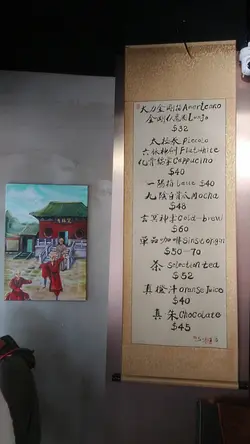 大力金剛指 Americano
金剛伏魔圈 Lungo
$32
太極拳 piccolo
六脈神劍 Flat white
化骨綿掌 Cappucino
$40
一陽指 Latte $40
九陰白骨爪 Mocha
$48
玄冥神掌 Cold-brew
$60
單品咖啡 Single origin
$50-70
茶 selection tea
$52
真橙汁 orange juice
$40
真朱 Chocolate
$45